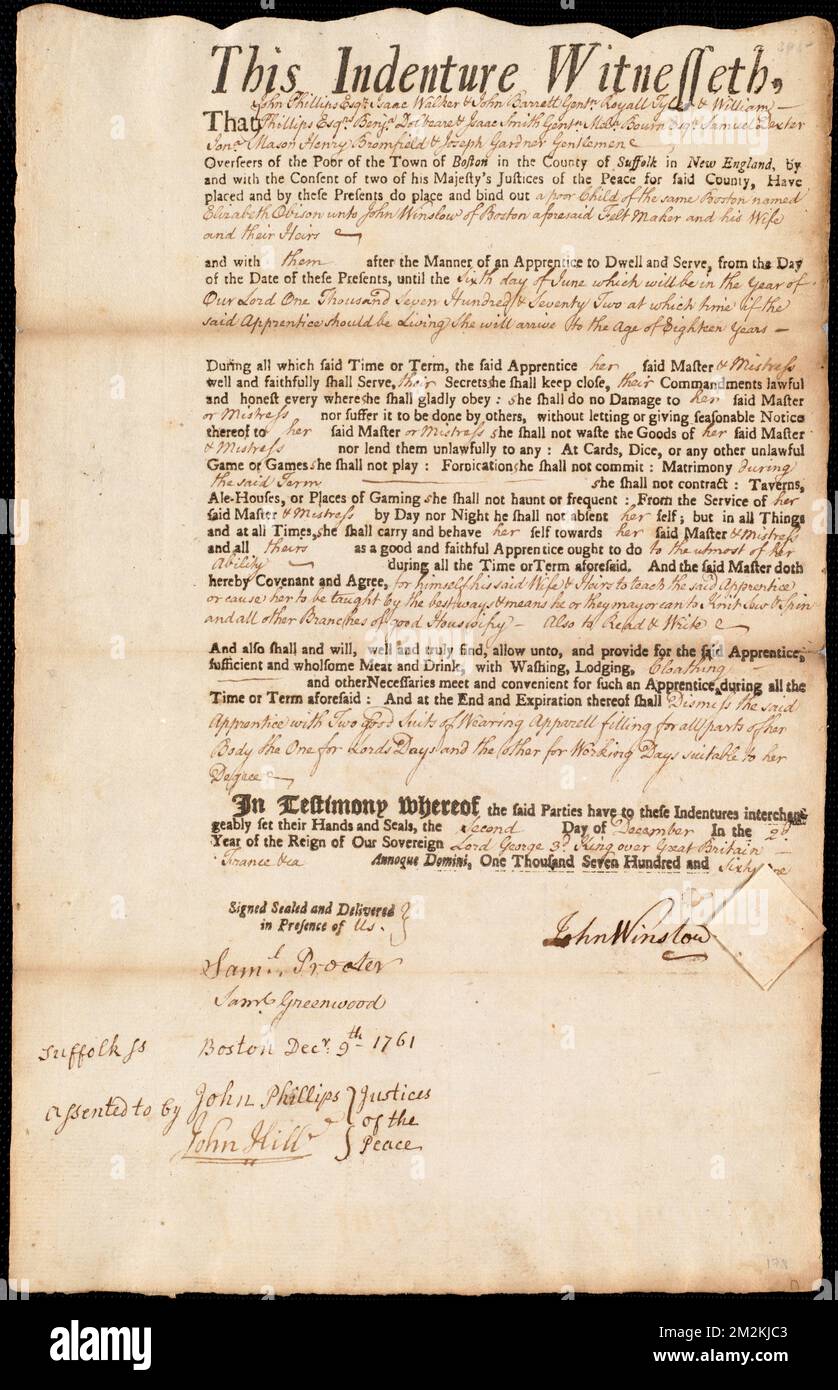 This Indenture Witnesseth,
John Phillips Esqr. Isaac Walker & John Barrett Gentn. Royall Tyler & William
That Phillips Esqr. Benja. Dolbeare & Isaac Smith Gentn. Bourn Esqr. Samuel Dexter
Jonn. Mason Henry Bromfield & Joseph Gardner Gentlemen
Overseers of the Poor of the Town of Boston in the County of Suffolk in New England, by
and with the Consent of two of his Majesty's Justices of the Peace for said County, Have
placed and by these Presents do place and bind out a poor Child of the same Boston named
Elizabeth Obison unto John Winslow of Boston aforesaid Felt Maker and his Wife
and their Heirs
and with them after the Manner of an Apprentice to Dwell and Serve, from the Day
of the Date of these Presents, until the Sixth day of June which will be in the Year of
Our Lord One Thousand Seven Hundred & Seventy Two at which time if the
said Apprentice should be Living She will arrive to the Age of Eighteen Years —
During all which said Time or Term, the said Apprentice her said Master & Mistress
well and faithfully shall Serve, their Secrets she shall keep close, their Commandments lawful
and honest every where she shall gladly obey : she shall do no Damage to her said Master
or Mistress nor suffer it to be done by others, without letting or giving seasonable Notice
thereof to her said Master or Mistress she shall not waste the Goods of her said Master
& Mistress nor lend them unlawfully to any : At Cards, Dice, or any other unlawful
Game or Games she shall not play : Fornication she shall not commit : Matrimony during
the said Term she shall not contract : Taverns,
Ale-Houses, or Places of Gaming she shall not haunt or frequent : From the Service of her
said Master & Mistress by Day nor Night he shall not absent her self ; but in all Things
and at all Times, she shall carry and behave her self towards her said Master & Mistress
and all theirs as a good and faithful Apprentice ought to do to the utmost of her
Ability during all the Time or Term aforesaid. And the said Master doth
hereby Covenant and Agree, for himself his said Wife & Heirs to teach the said Apprentice
or cause her to be taught by the best ways & means he or they may or can to Knit Sew & Spin
and all other Branches of good Houswifry — Also to Read & Write
And also shall and will, well and truly find, allow unto, and provide for the said Apprentice,
sufficient and wholsome Meat and Drink, with Washing, Lodging, Cloathing
and other Necessaries meet and convenient for such an Apprentice, during all the
Time or Term aforesaid : And at the End and Expiration thereof shall Dismiss the said
Apprentice with Two good Suits of Wearing Apparell fitting for all parts of her
Body the One for Lords Days and the other for Working Days suitable to her
Degree
In Testimony whereof the said Parties have to these Indentures interchan-
geably set their Hands and Seals, the Second Day of December In the 2d.
Year of the Reign of Our Sovereign Lord George 3d. King over Great Britain
France &ca Annoque Domini, One Thousand Seven Hundred and Sixty One
Signed Sealed and Delivered
in Presence of Us.
John Winslow
Saml. Procter
Saml. Greenwood
Suffolk ss Boston Decr. 9th 1761
assented to by John Phillips Justices
of the
John Hill Peace
178
alamy
Image ID: 2M2KJC3
www.alamy.com